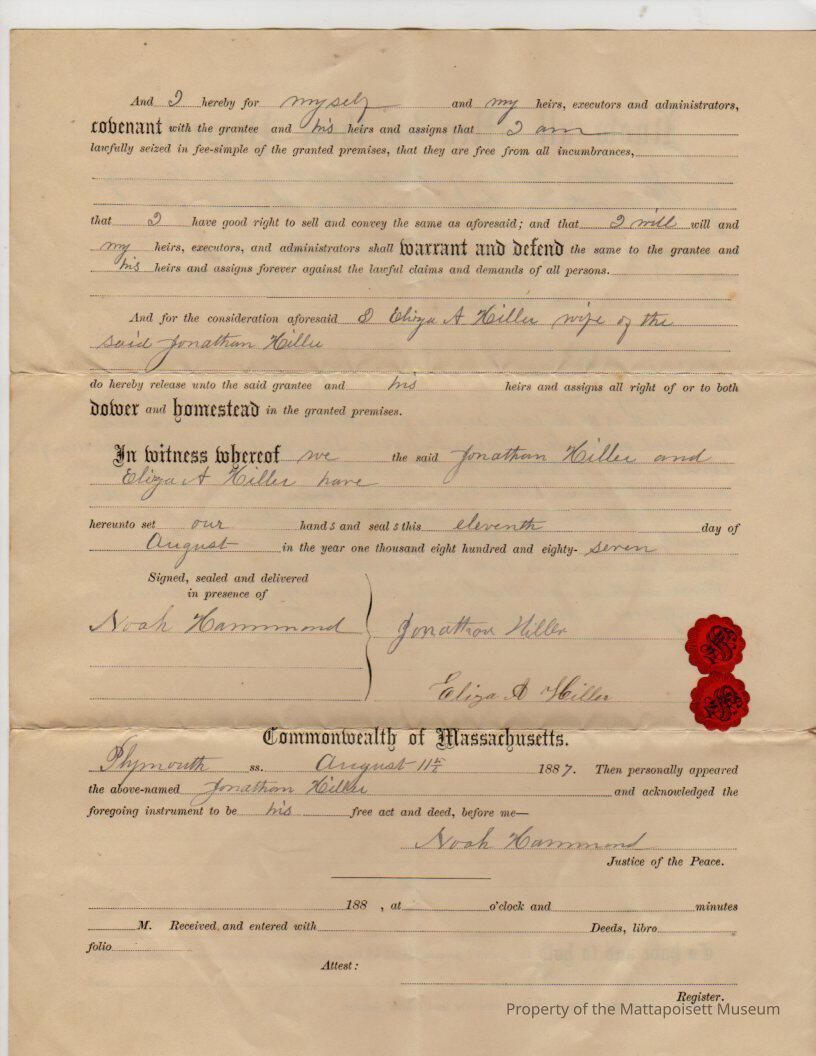 And I hereby for myself and my heirs, executors and administrators,
covenant with the grantee and his heirs and assigns that I am
lawfully seized in fee-simple of the granted premises, that they are free from all incumbrances,
that I have good right to sell and convey the same as aforesaid; and that I will will and
my heirs, executors, and administrators shall warrant and defend the same to the grantee and
his heirs and assigns forever against the lawful claims and demands of all persons.
And for the consideration aforesaid I Eliza A Hiller wife of the
said Jonathan Hiller
do hereby release unto the said grantee and his heirs and assigns all right of or to both
dower and homestead in the granted premises.
In witness whereof we the said Jonathan Hiller and
Eliza A Hiller have
hereunto set our hands and seals this eleventh day of
August in the year one thousand eight hundred and eighty-seven
Signed, sealed and delivered
in presence of
Noah Hammond Jonathan Hiller
Eliza A Hiller
Commonwealth of Massachusetts.
Plymouth ss. August 11th 1887. Then personally appeared
the above-named Jonathan Hiller and acknowledged the
foregoing instrument to be his free act and deed, before me—
Noah Hammond
Justice of the Peace.
188 , at o'clock and minutes
M. Received and entered with Deeds, libro
folio
Attest:
Register.
Property of the Mattapoisett Museum